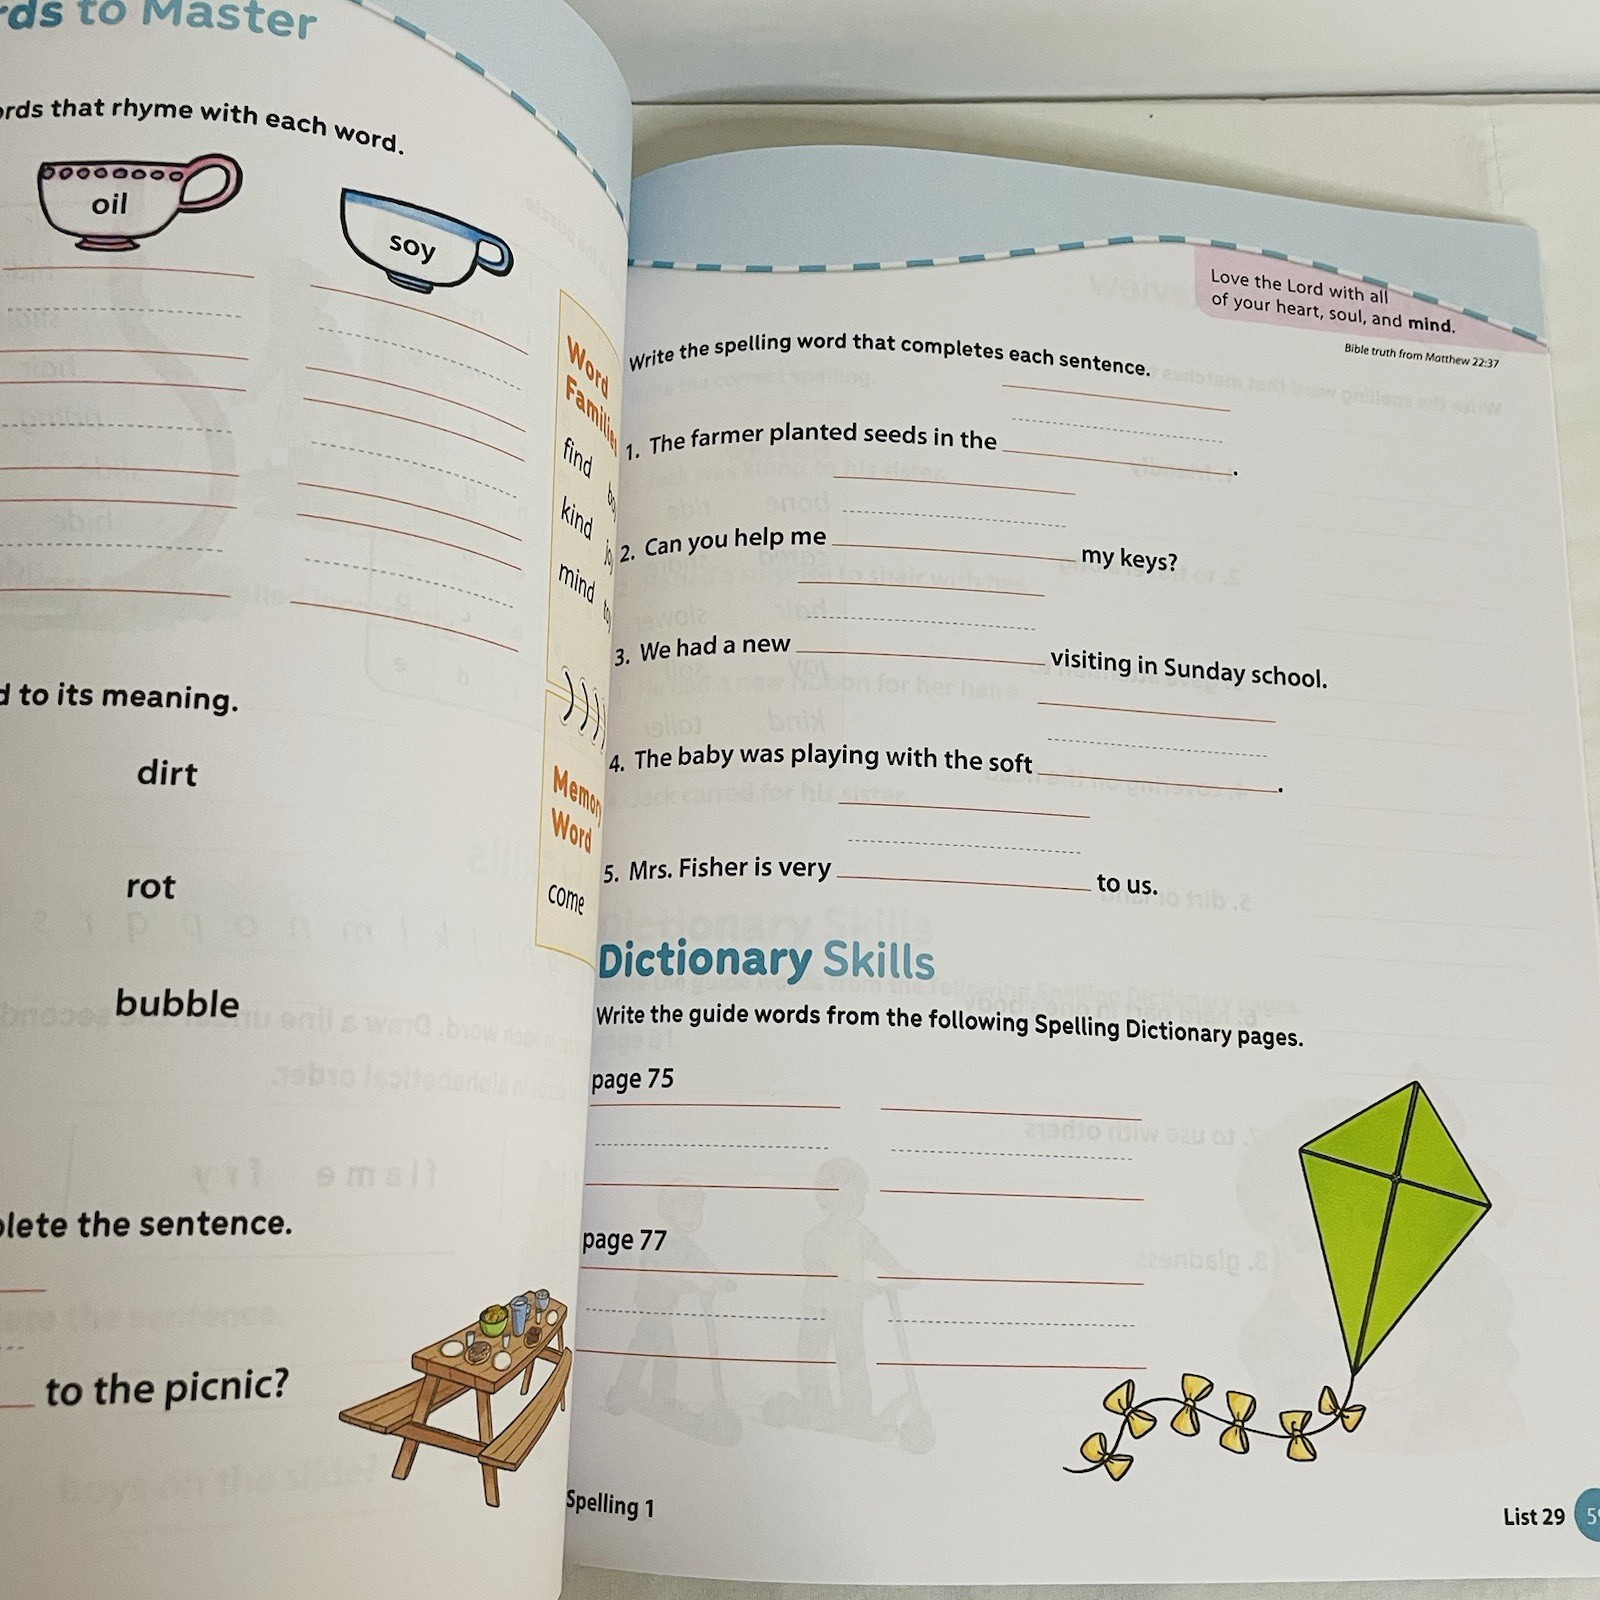 to Master
that rhyme with each word.
oil
soy
Word
find
kind
mind
Word
come
to its meaning.
dirt
rot
bubble
the sentence.
to the picnic?
Love the Lord with all
of your heart, soul, and mind.
Bible truth from Matthew 22:37
Write the spelling word that completes each sentence.
1. The farmer planted seeds in the .
2. Can you help me my keys?
3. We had a new visiting in Sunday school.
4. The baby was playing with the soft .
5. Mrs. Fisher is very to us.
Dictionary Skills
Write the guide words from the following Spelling Dictionary pages.
page 75
page 77
Spelling 1
List 29